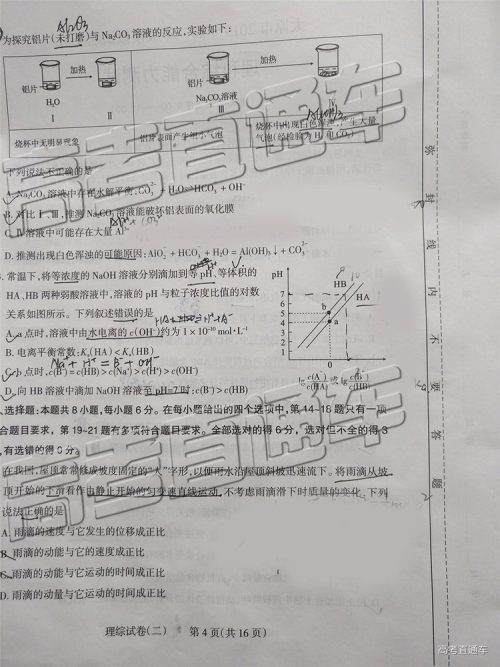 为探究铝片(未打磨)与Na₂CO₃溶液的反应,实验如下:
加热
加热
铝片
铝片
H₂O
Na₂CO₃溶液
Ⅰ
Ⅱ
Ⅲ
Ⅳ
烧杯中无明显现象
铝片表面产生细小气泡
烧杯中出现白色浑浊,产生大量
气泡(经检验为H₂和CO₂)
下列说法不正确的是
A. Na₂CO₃溶液中存在水解平衡:CO₃²⁻+H₂O⇌HCO₃⁻+OH⁻
B. 对比Ⅰ、Ⅲ,推测Na₂CO₃溶液能破坏铝表面的氧化膜
Ⅳ溶液中可能存在大量Al³⁺
D. 推测出现白色浑浊的可能原因:AlO₂⁻+HCO₃⁻+H₂O=Al(OH)₃↓+CO₃²⁻
常温下,将等浓度的NaOH溶液分别滴加到等pH、等体积的
HA、HB两种弱酸溶液中,溶液的pH与粒子浓度比值的对数
关系如图所示。下列叙述错误的是
A. a点时,溶液中由水电离的c(OH⁻)约为1×10⁻¹⁰ mol·L⁻¹
B. 电离平衡常数:Kₐ(HA)<Kₐ(HB)
C. b点时,c(B⁻)=c(HB)>c(Na⁺)>c(H⁺)>c(OH⁻)
D. 向HB溶液中滴加NaOH溶液至pH=7时:c(B⁻)>c(HB)
pH
7
6
5
4
3
2
1
HB
HA
b
a
0
lg c(A⁻)/c(HA) 或 lg c(B⁻)/c(HB)
、选择题:本题共8小题,每小题6分。在每小题给出的四个选项中,第14~18题只有一项
合题目要求,第19~21题有多项符合题目要求。全部选对的得6分,选对但不全的得3
,有选错的得0分。
在我国,屋顶常常修成坡度固定的“人”字形,以便雨水沿屋顶斜坡迅速流下。将雨滴从坡
顶开始的下滑看作由静止开始的匀变速直线运动,不考虑雨滴滑下时质量的变化,下列
说法正确的是
A. 雨滴的速度与它发生的位移成正比
B. 雨滴的动能与它的速度成正比
C. 雨滴的动能与它运动的时间成正比
D. 雨滴的动量与它运动的时间成正比
理综试卷(二) 第4页(共16页)
弥 封 线 内 不 要 答 题
高考直通车
高考直通车
高考直通车
高考直通车